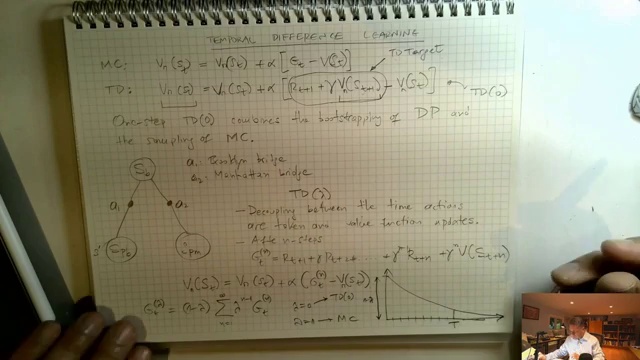 TEMPORAL DIFFERENCE LEARNING
MC: Vπ(St) = Vπ(St) + α [Gt − V(St)]
TD Target
TD: Vπ(St) = Vπ(St) + α [Rt+1 + γ Vπ(St+1) − Vπ(St)]
TD(0)
One-step TD(0) combines the bootstrapping of DP and
the sampling of MC.
So
a1: Brooklyn bridge
a2: Manhattan bridge
a1
a2
S'
TD(λ)
- Decoupling between the time actions
are taken and value function updates.
- After n-steps
Gt(n) = Rt+1 + γ Rt+2 + ... + γ Rt+n + γⁿ V(St+n)
Vπ(St) = Vπ(St) + α (Gt(n) − Vπ(St))
Gt(λ) = (1-λ) Σ n=1 λⁿ⁻¹ Gt(n)
λ=0 → TD(0)
λ=1 → MC
1-λ
T